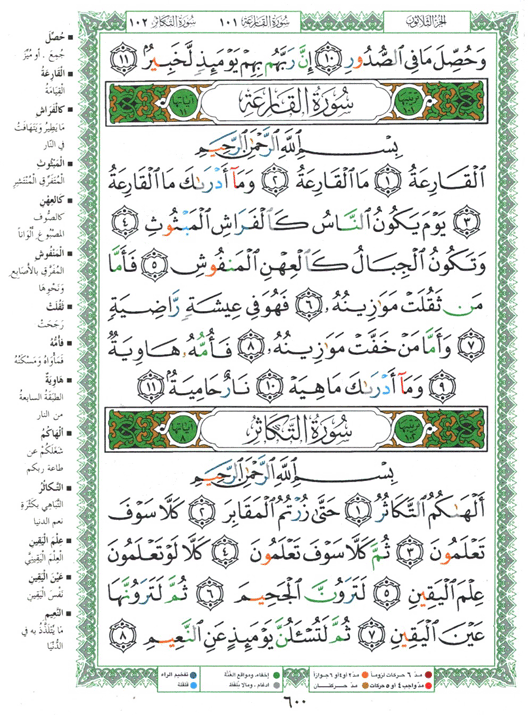 الجزء الثلاثون
سورة القارعة ١٠١
سورة التكاثر ١٠٢
وَحُصِّلَ مَا فِى ٱلصُّدُورِ ١٠ إِنَّ رَبَّهُم بِهِمْ يَوْمَئِذٍ لَّخَبِيرٌ ١١
سُورَةُ القَارِعَةِ
بِسْمِ ٱللَّهِ ٱلرَّحْمَٰنِ ٱلرَّحِيمِ
ٱلْقَارِعَةُ ١ مَا ٱلْقَارِعَةُ ٢ وَمَآ أَدْرَىٰكَ مَا ٱلْقَارِعَةُ
٣ يَوْمَ يَكُونُ ٱلنَّاسُ كَٱلْفَرَاشِ ٱلْمَبْثُوثِ ٤
وَتَكُونُ ٱلْجِبَالُ كَٱلْعِهْنِ ٱلْمَنفُوشِ ٥ فَأَمَّا
مَن ثَقُلَتْ مَوَٰزِينُهُۥ ٦ فَهُوَ فِى عِيشَةٍ رَّاضِيَةٍ
٧ وَأَمَّا مَنْ خَفَّتْ مَوَٰزِينُهُۥ ٨ فَأُمُّهُۥ هَاوِيَةٌ
٩ وَمَآ أَدْرَىٰكَ مَا هِيَهْ ١٠ نَارٌ حَامِيَةٌۢ ١١
سُورَةُ التَّكَاثُرِ
بِسْمِ ٱللَّهِ ٱلرَّحْمَٰنِ ٱلرَّحِيمِ
أَلْهَىٰكُمُ ٱلتَّكَاثُرُ ١ حَتَّىٰ زُرْتُمُ ٱلْمَقَابِرَ ٢ كَلَّا سَوْفَ
تَعْلَمُونَ ٣ ثُمَّ كَلَّا سَوْفَ تَعْلَمُونَ ٤ كَلَّا لَوْ تَعْلَمُونَ
عِلْمَ ٱلْيَقِينِ ٥ لَتَرَوُنَّ ٱلْجَحِيمَ ٦ ثُمَّ لَتَرَوُنَّهَا
عَيْنَ ٱلْيَقِينِ ٧ ثُمَّ لَتُسْـَٔلُنَّ يَوْمَئِذٍ عَنِ ٱلنَّعِيمِ ٨
■ حُصِّلَ
جُمِعَ . أو مُيِّزَ
■ القَارِعَةُ
القِيَامَةُ
■ كالفَرَاشِ
ما يَطِيرُ ويَتَهافَتُ
في النار
■ المَبْثُوثِ
المُتَفَرِّقِ المُنْتَشِرِ
■ كالعِهْنِ
كالصُّوفِ
المصْبُوغِ ألوَاناً
■ المَنْفُوشِ
المُفَرَّقِ بالأصَابِعِ
ونَحْوِهَا
■ ثَقُلَتْ
رَجَحَتْ
■ فَأُمُّهُ
فَمَأْوَاهُ ومَسْكَنُهُ
■ هَاوِيَةٌ
الطبقةُ السابعةُ
من النار
■ ألْهَاكُمْ
شَغَلَكُمْ عن
طاعةِ ربكم
■ التَّكاثُرُ
التَّبَاهِي بكَثْرَةِ
نعم الدنيا
■ عِلْمَ اليَقِينِ
العِلْمَ اليَقِينِيَّ
■ عَيْنَ اليَقِينِ
نَفْسَ اليَقِينِ
■ النَّعِيمِ
ما يُتَلَذَّذُ به في
الدُّنْيَا
مدّ ٦ حركات لزوماً مدّ ٢ أو ٤ أو ٦ جوازاً
مدّ واجب ٤ أو ٥ حركات مدّ حركتان
إخفاء، ومواقع الغُنَّة
إدغام ، وما لا يُلفظ
تفخيم الراء
قلقلة
٦٠٠